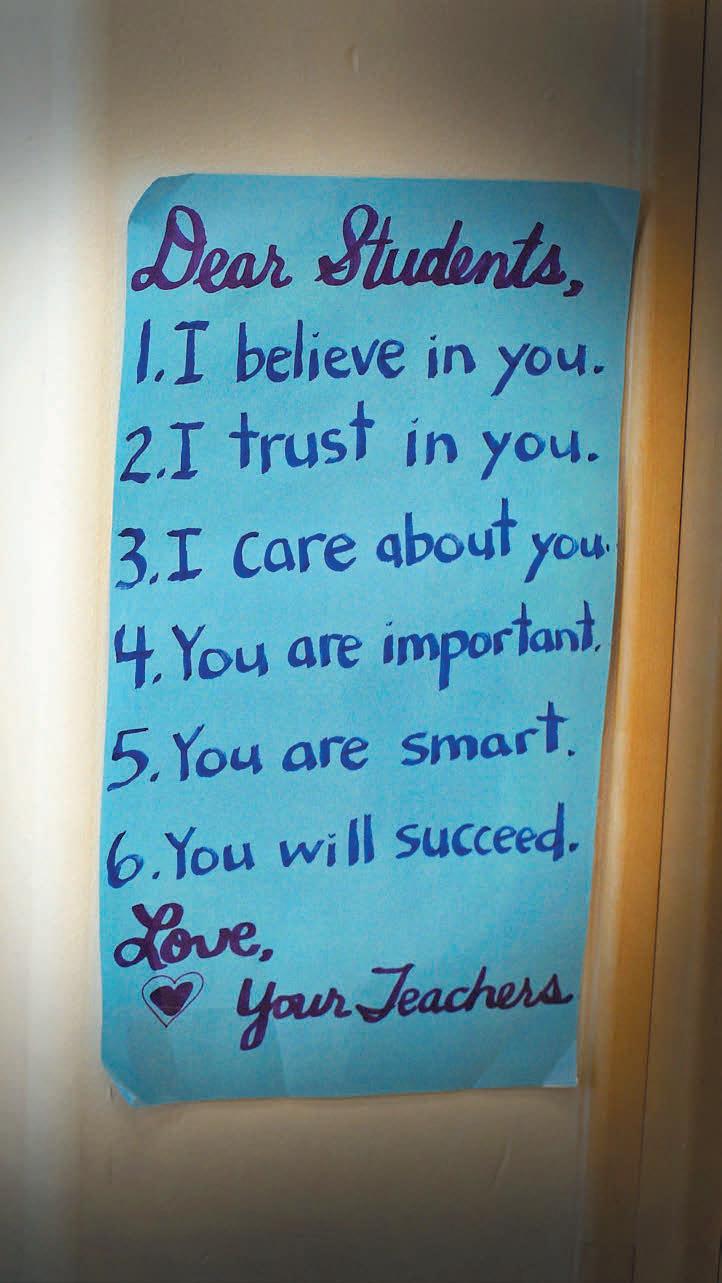 Dear Students,
1. I believe in you.
2. I trust in you.
3. I care about you.
4. You are important.
5. You are smart.
6. You will succeed.
Love,
Your Teachers